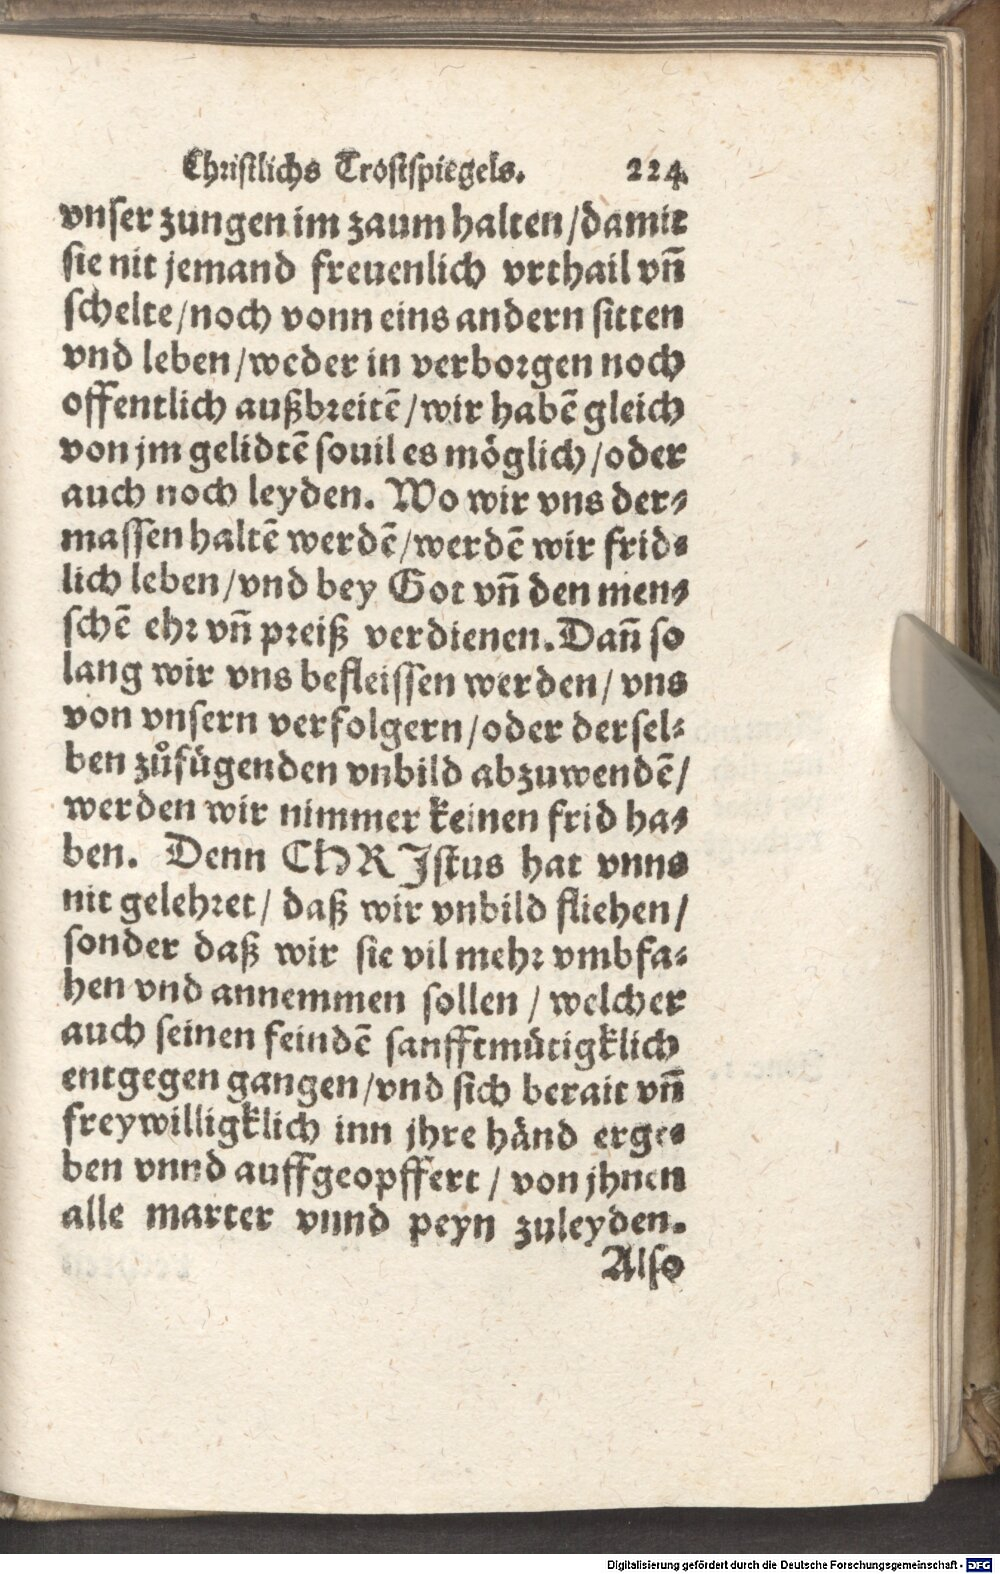 Christlichs Trostspiegels. 224.
vnser zungen im zaum halten/damit
sie nit jemand freuenlich vrthail vñ
schelte/noch vonn eins andern sitten
vnd leben/weder in verborgen noch
offentlich außbreitē/wir habē gleich
von jm gelidtē souil es möglich/oder
auch noch leyden. Wo wir vns der⸗
massen haltē werdē/werdē wir frid⸗
lich leben/vnd bey Got vñ den men⸗
schē ehr vñ preiß verdienen. Dañ so
lang wir vns befleissen werden/ vns
von vnsern verfolgern/oder dersel⸗
ben zůfügenden vnbild abzuwendē/
werden wir nimmer keinen frid ha⸗
ben. Denn CHRIstus hat vnns
nit gelehret/ daß wir vnbild fliehen/
sonder daß wir sie vil mehr vmbfa⸗
hen vnd annemmen sollen / welcher
auch seinen feindē sanfftmütigklich
entgegen gangen/vnd sich berait vñ
freywilligklich inn jhre händ erge⸗
ben vnnd auffgeopffert / von jhnen
alle marter vnnd peyn zuleyden.
Also
Digitalisierung gefördert durch die Deutsche Forschungsgemeinschaft - DFG